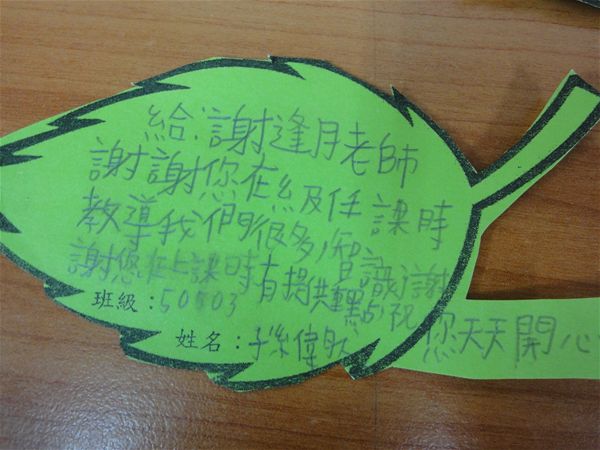 給:謝逢月老師
謝謝您在級及任課時
教導我們很多知識,謝
謝您在上課時有提供重點,祝
班級:50503
您天天開心
姓名:孫偉